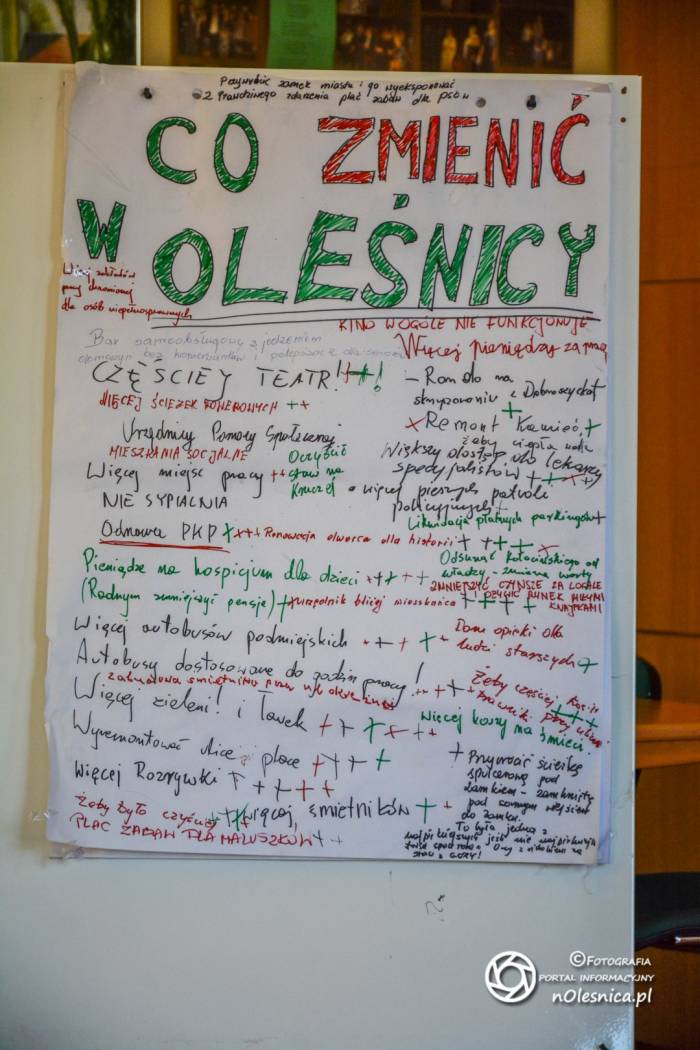 Przywrócić zamek miastu i go wyeksponować
2 prawdziwego zdarzenia plac zabaw dla psów
CO ZMIENIĆ
W OLEŚNICY
Więcej zakładów
pracy chronionej
dla osób niepełnosprawnych
KINO WOGÓLE NIE FUNKCJONUJE
Bar samoobsługowy z jedzeniem
domowym bez konserwantów i
Więcej pieniędzy za pracę
CZĘŚCIEJ TEATR! ++!
- Rondo na
skrzyżowaniu z Dobroszycką +
WIĘCEJ ŚCIEŻEK ROWEROWYCH ++
x Remont Kamienic, +
żeby ciepła woda
Urzędnicy Pomocy Społecznej
MIESZKANIA SOCJALNE
Oczyścić
staw na
Większy dostęp do lekarzy
specjalistów + + x +
Więcej miejsc pracy ++
więcej pieszych patroli
policyjnych +
NIE SYPIALNIA
Likwidacja płatnych parkingów +
Odnowa PKP x x + + Renowacja dworca dla historii + + + + x
Odsunąć od
władzy - zmiana warty
Pieniądze na hospicjum dla dzieci + + + + +
ZMNIEJSZYĆ CZYNSZE ZA LOKALE
! OŻYWIĆ RYNEK MIŁYMI
KNAJPKAMI
(Radnym zmniejszyć pensje) + x urzędnik bliżej mieszkańca + + + +
Więcej autobusów podmiejskich + + + + +
Dom opieki dla
ludzi starszych +
Autobusy dostosowane do godzin pracy! + + + +
Żeby częściej kosili
trawniki przy ulicy
Więcej zieleni! i Ławek + + x x + +
więcej koszy na śmieci
Wyremontować ulice i place + + + +
Więcej Rozrywki + + + + +
+ Przywrócić ścieżkę
spacerową pod
zamkiem - zamkniętą
pod samym wejściem
do zamku.
To była jedna z
najpiękniejszych jeśli nie najpiękniejsza
Żeby było czyściej + + +
więcej śmietników + +
PLAC ZABAW DLA MALUSZKÓW + +
z GÓRY!
©FOTOGRAFIA
PORTAL INFORMACYJNY
nOlesnica.pl